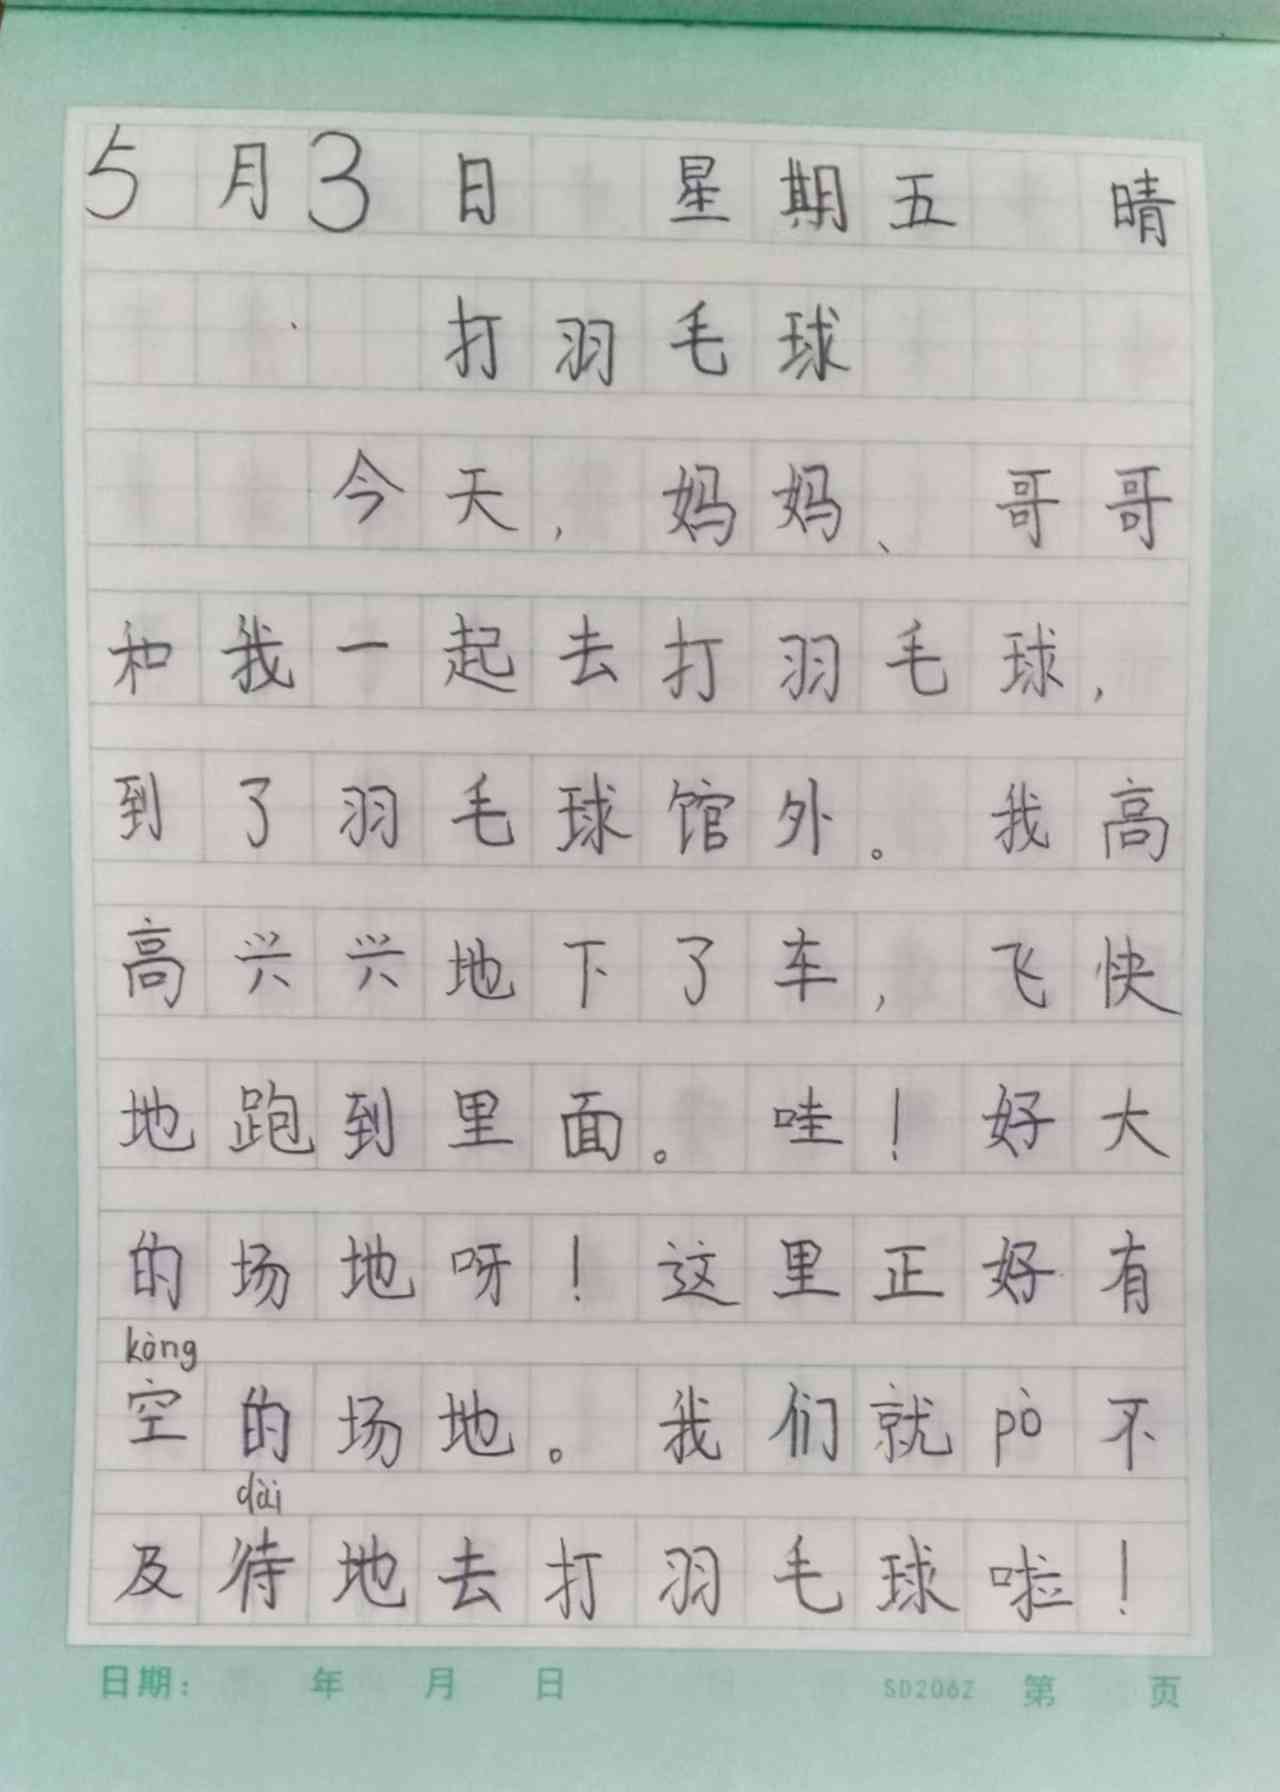 5月3日 星期五 晴
打羽毛球
今天，妈妈、哥哥
和我一起去打羽毛球，
到了羽毛球馆外。我高
高兴兴地下了车，飞快
地跑到里面。哇！好大
的场地呀！这里正好有
kòng
空的场地。我们就pò不
dài
及待地去打羽毛球啦！
日期： 年 月 日 SD206Z 第 页